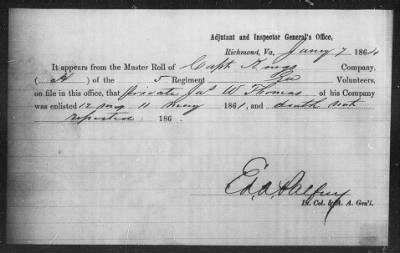 Adjutant and Inspector General's Office,
Richmond, Va, Jany 7 1864
It appears from the Muster Roll of Capt Kings Company,
( A ) of the 5 Regiment Ga Volunteers,
on file in this office, that Private Jas W Thomas of his Company
was enlisted 11 May 1861, and death not
reported 186
Lt. Col. & A. A. Gen'l.